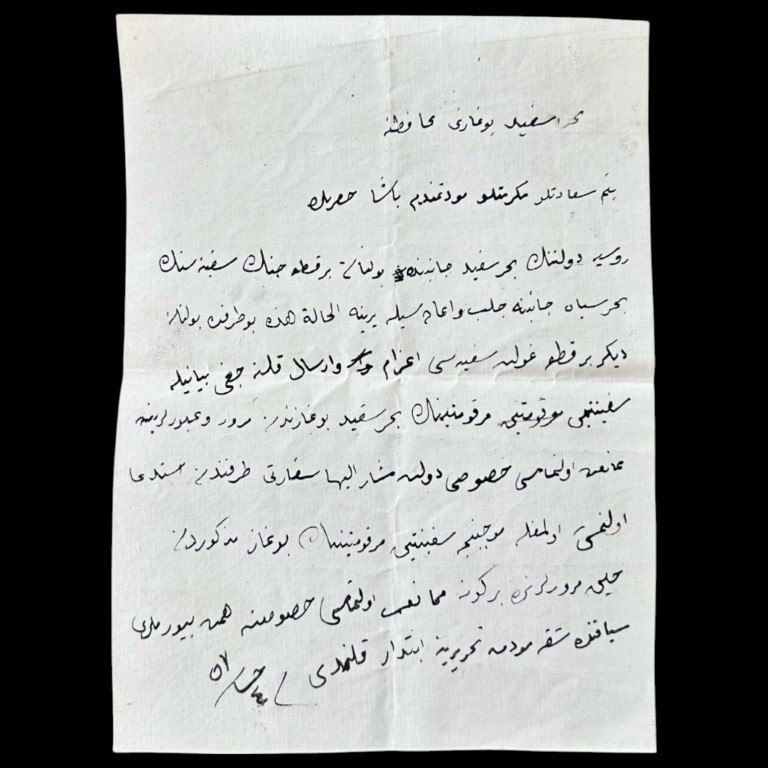 بحر سفید بوغازی محافظنه
بنم سعادتلو مکرمتلو مودتمندم پاشا حضرتلری
روسیه دولتنك بحر سفید جانبنده بولنان بر قطعه جنك سفینه سنك
بحر سیاه جانبنه جلب و اعاده سیله یرینه الحالة هذه بو طرفده بولنان
دیکر بر قطعه غولت سفینه سی اعزام و ارسال قلنه جغی بیانیله
سفینتین مرقومتینك بحر سفید بوغازندن مرور و عبورلرینه
ممانعت اولنمامسی خصوصی دولت مشار الیها سفارتی طرفندن استدعا
اولنمش اولمغله موجبنجه سفینتین مرقومتینك بوغاز مذکوردن
حین مرورلرنده بر کونه ممانعت اولنمامسی خصوصنه همت بیورملری
سیاقنده شقه مودت تحریرینه ابتدار قلندی